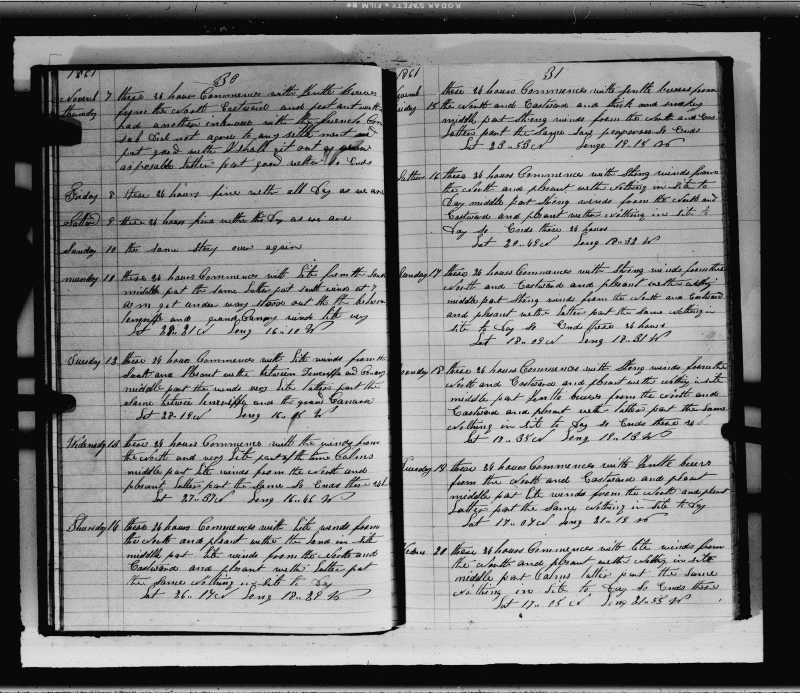 KODAK SAFETY FILM
1861 30
Novem 7 these 24 hours Commences with Gentle breeses
thursday from the North Eastward and
had another interview with the french Con
sul Did not agree to any settlement and
part good wether I shall git out as soon as
posable latter part good wether So Ends
Friday 8 these 24 hours fine wether all Day as we are
Satturd 9 these 24 hours fine wether the Day as we are
Sunday 10 the same Story over again
munday 11 these 24 hours Commences with Lite from the South
middle part the same latter part south winds at 7
A m got under way Stood out the between
teneriffe and grand Canary winds lite very
Lat 28..21 N Long 16..10 W
Tuesday 12 these 24 hours Commences with Lite winds from the
South and Plesant wether between Teneriffe and Canary
middle part the winds very Lite latter part the
same betwee teneriffe and the grand Canara
Lat 28..19 N Long 16..06 W
Widensdy 13 these 24 hours Commences with the winds from
the North and very Lite part of the time Calms
middle part Lite winds from the North and
plesant latter part the Same So Ends these 24 h
Lat 27..37 N Long 16..46 W
Thursday 14 these 24 hours Commences with Lite winds from
the North and plesant wether the land in Site
middle part Lite winds from the North and
Eastward and plesant wether latter part
the Same Nothing in Site to Day
Lat 26..17 N Long 18..28 W
1861 31
Novem these 24 hours Commences with Gentle breeses from
friday 15 the North and Eastward and thick and smokey
middle part Strong winds from the North and Eas
latter part the Same Saw So Ends
Lat 23..53 N Longe 18..15 W
Satturd 16 these 24 hours Commences with Strong winds from
the North and plesant wether Nothing in Site to
Day middle part Strong winds from the North and
Eastward and plesant wether Nothing in Site to
Day So Ends these 24 hours
Lat 20..49 N Long 18..32 W
Sunday 17 these 24 hours Commences with Strong winds from the
North and Eastward and plesant wether
middle part Strong winds from the North and Eastward
and plesant wether latter part the same Nothing in
Site to Day So Ends these 24 hours
Lat 18..09 N Long 18..31 W
munday 18 these 24 hours Commences with Strong winds from the
North and Eastward and plesant wether Nothing in Site
middle part Gentle breeses from the North and
Eastward and plesant wether latter part the Same
Nothing in Site to Day So Ends these 24
Lat 17..35 N Long 19..13 W
Tuesday 19 these 24 hours Commences with Gentle breeses
from the North and Eastward and plesant
middle part Lite winds from the North and plesant
Latter part the Same Nothing in Site to Day
Lat 17..07 N Long 21..18 W
Widens 20 these 24 hours Commences with Lite winds from
the North and plesant wether Nothing in Site
middle part Calms latter part the Same
Nothing in Site to Day So Ends these
Lat 17..05 N Long 21..55 W